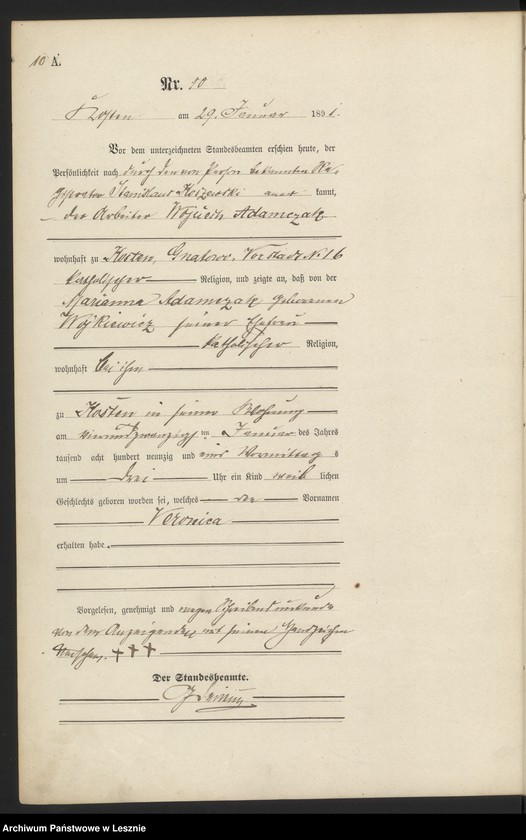 10 A.
Nr. 10
Kosten am 29. Januar 1891.
Vor dem unterzeichneten Standesbeamten erschien heute, der
Persönlichkeit nach durch den von Person bekannten
Stanislaus kannt,
der Arbeiter Wojciech Adamczak
wohnhaft zu Kosten, Vorstadt N. 16
katholischer Religion, und zeigte an, daß von der
Marianna Adamczak geborenen
Wojkiewicz seiner Ehefrau
katholischer Religion,
wohnhaft bei ihm
zu Kosten in seiner Wohnung
am vierundzwanzigsten Januar des Jahres
tausend acht hundert neunzig und eins Vormittags
um drei Uhr ein Kind weiblichen
Geschlechts geboren worden sei, welches den Vornamen
Veronica
erhalten habe.
Vorgelesen, genehmigt und wegen
von dem Anzeigenden mit seinem Handzeichen
versehen. +++
Der Standesbeamte.
Archiwum Państwowe w Lesznie